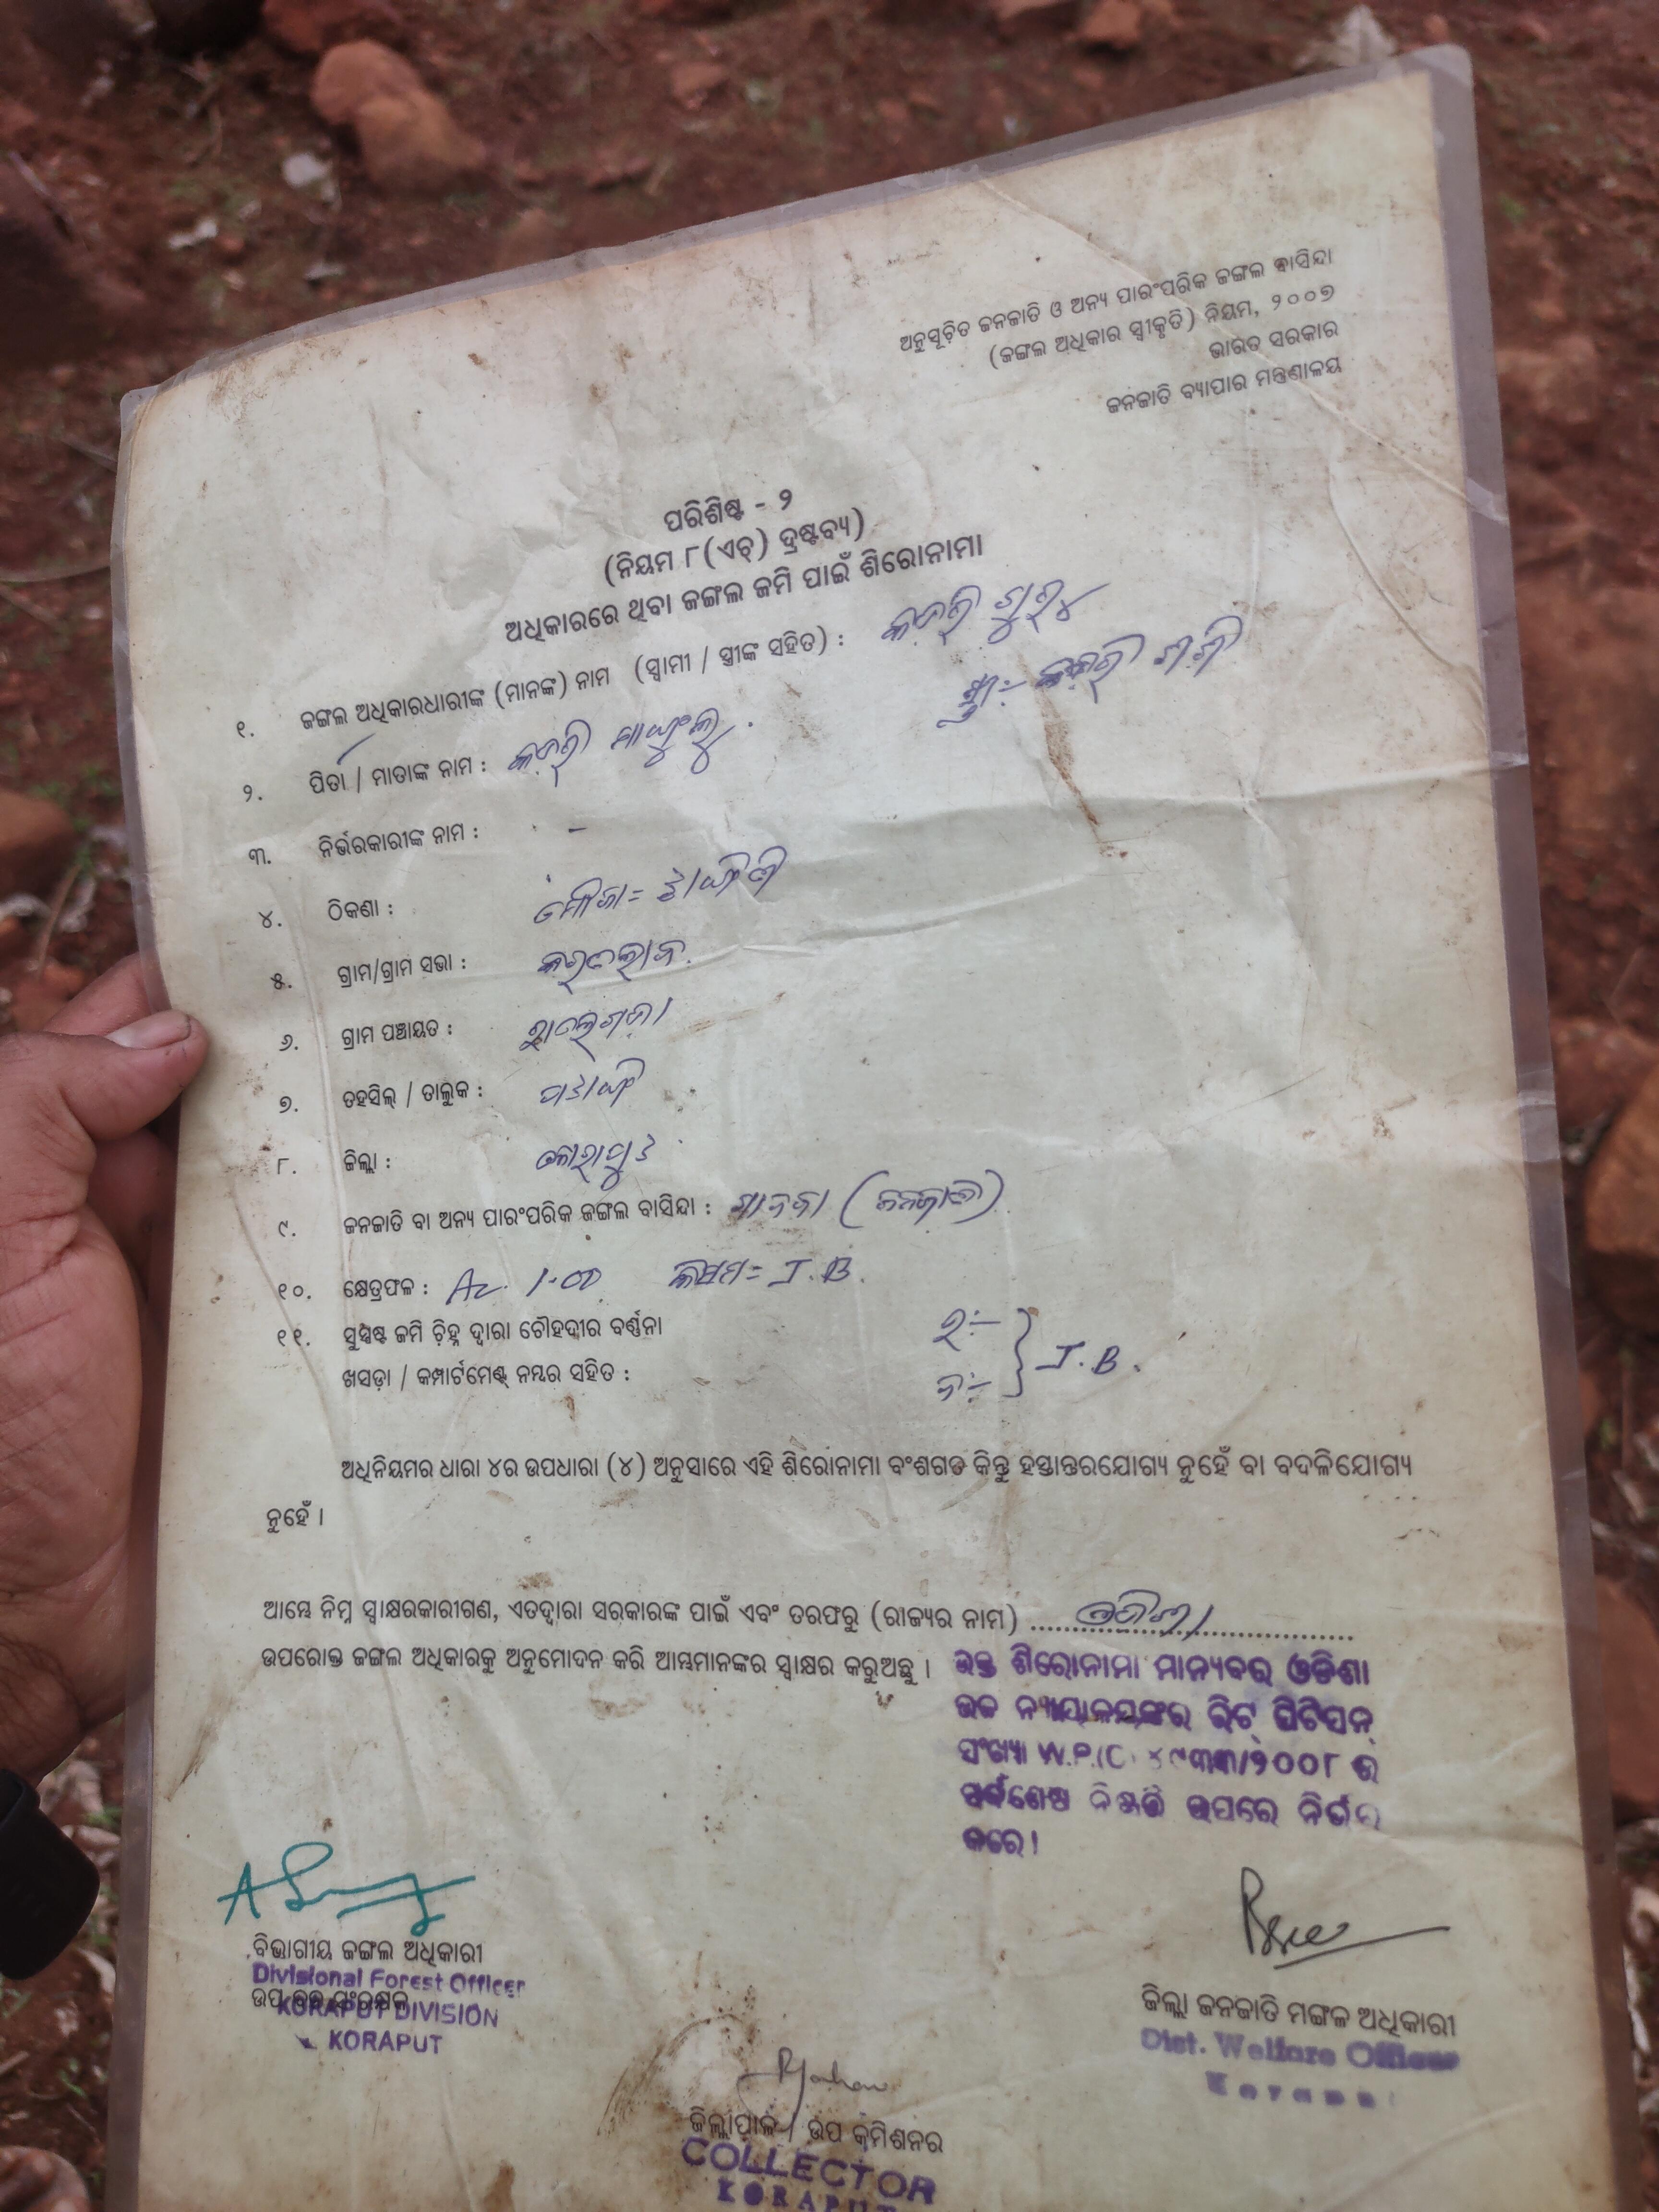 ଅନୁସୂଚିତ ଜନଜାତି ଓ ଅନ୍ୟ ପାରଂପରିକ ଜଙ୍ଗଲ ବାସିନ୍ଦା
(ଜଙ୍ଗଲ ଅଧିକାର ସ୍ୱୀକୃତି) ନିୟମ, ୨୦୦୭
ଭାରତ ସରକାର
ଜନଜାତି ବ୍ୟାପାର ମନ୍ତ୍ରଣାଳୟ
ପରିଶିଷ୍ଟ - ୨
(ନିୟମ ୮(ଏଚ୍) ଦ୍ରଷ୍ଟବ୍ୟ)
ଅଧିକାରରେ ଥିବା ଜଙ୍ଗଲ ଜମି ପାଇଁ ଶିରୋନାମା
୧. ଜଙ୍ଗଲ ଅଧିକାରଧାରୀଙ୍କ (ମାନଙ୍କ) ନାମ (ସ୍ୱାମୀ / ସ୍ତ୍ରୀଙ୍କ ସହିତ) :
୨. ପିତା / ମାତାଙ୍କ ନାମ :
୩. ନିର୍ଭରକାରୀଙ୍କ ନାମ : -
୪. ଠିକଣା : ମୌଜା=
୫. ଗ୍ରାମ/ଗ୍ରାମ ସଭା :
୬. ଗ୍ରାମ ପଞ୍ଚାୟତ :
୭. ତହସିଲ୍ / ତାଲୁକ :
୮. ଜିଲ୍ଲା : କୋରାପୁଟ
୯. ଜନଜାତି ବା ଅନ୍ୟ ପାରଂପରିକ ଜଙ୍ଗଲ ବାସିନ୍ଦା : (ଜନଜାତି)
୧୦. କ୍ଷେତ୍ରଫଳ : Ac. 1-00 କିସମ= J.B.
୧୧. ସୁସ୍ପଷ୍ଟ ଜମି ଚିହ୍ନ ଦ୍ୱାରା ଚୌହଦୀର ବର୍ଣ୍ଣନା
ଖସଡ଼ା / କମ୍ପାର୍ଟମେଣ୍ଟ୍ ନମ୍ବର ସହିତ : J.B.
ଅଧିନିୟମର ଧାରା ୪ର ଉପଧାରା (୪) ଅନୁସାରେ ଏହି ଶିରୋନାମା ବଂଶଗତ କିନ୍ତୁ ହସ୍ତାନ୍ତରଯୋଗ୍ୟ ନୁହେଁ ବା ବଦଳିଯୋଗ୍ୟ
ନୁହେଁ ।
ଆମ୍ଭେ ନିମ୍ନ ସ୍ୱାକ୍ଷରକାରୀଗଣ, ଏତଦ୍ୱାରା ସରକାରଙ୍କ ପାଇଁ ଏବଂ ତରଫରୁ (ରାଜ୍ୟର ନାମ) ଓଡିଶା
ଉପରୋକ୍ତ ଜଙ୍ଗଲ ଅଧିକାରକୁ ଅନୁମୋଦନ କରି ଆମ୍ଭମାନଙ୍କର ସ୍ୱାକ୍ଷର କରୁଅଛୁ ।
ଉକ୍ତ ଶିରୋନାମା ମାନ୍ୟବର ଓଡିଶା
ଉଚ୍ଚ ନ୍ୟାୟାଳୟଙ୍କର ରିଟ୍ ପିଟିସନ୍
ସଂଖ୍ୟା W.P.(C) ୪୯୩୩/୨୦୦୮ ର
ସର୍ବଶେଷ ନିଷ୍ପତ୍ତି ଉପରେ ନିର୍ଭର
କରେ।
ବିଭାଗୀୟ ଜଙ୍ଗଲ ଅଧିକାରୀ
Divisional Forest Officer
ଉପ ବନ ସଂରକ୍ଷକ
KORAPUT DIVISION
KORAPUT
ଜିଲ୍ଲା ଜନଜାତି ମଙ୍ଗଳ ଅଧିକାରୀ
Dist. Welfare Officer
ଜିଲ୍ଲାପାଳ / ଉପ କମିଶନର
COLLECTOR
KORAPUT